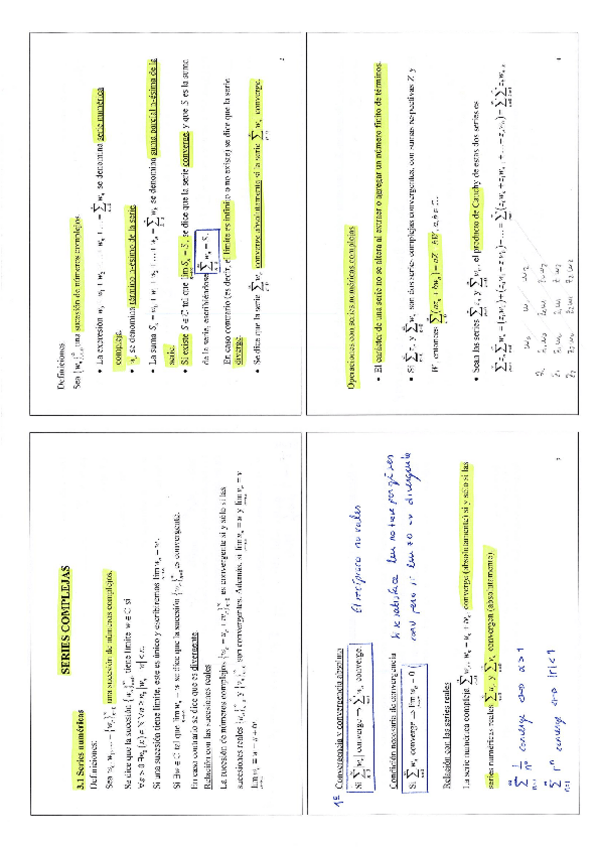 SERIES COMPLEJAS
3.1 Series numéricas
Definiciones:
Sea w₀, w₁, ... = {wₙ}ₙ₌₀^∞ una sucesión de números complejos.
Se dice que la sucesión {wₙ}ₙ₌₀^∞ tiene límite w ∈ C si
Si una sucesión tiene límite, este es único y escribiremos lim wₙ = w.
Si ∃w ∈ C tal que lim wₙ = w se dice que la sucesión {wₙ}ₙ₌₀^∞ es convergente.
En caso contrario se dice que es divergente.
Relación con las sucesiones reales
La sucesión de números complejos {wₙ = uₙ + ivₙ}ₙ₌₀^∞ es convergente si y sólo si las
sucesiones reales {uₙ}ₙ₌₀^∞ y {vₙ}ₙ₌₀^∞ son convergentes. Además, si lim uₙ = u y lim vₙ = v
lim wₙ = w = u + iv
Definiciones
Sea {wₙ}ₙ₌₀^∞ una sucesión de números complejos.
• La expresión w₀ + w₁ + w₂ + ... + wₙ + ... = Σ wₙ se denomina serie numérica
compleja.
• wₙ se denomina término n-ésimo de la serie.
• La suma Sₙ = w₀ + w₁ + ... + wₙ = Σ wₖ se denomina suma parcial n-ésima de la
serie.
• Si existe S ∈ C tal que lim Sₙ = S, se dice que la serie converge, y que S es la suma
de la serie, escribiéndose Σ wₙ = S.
En caso contrario (es decir, el límite es infinito o no existe) se dice que la serie
diverge.
• Se dice que la serie Σ wₙ converge absolutamente si la serie Σ |wₙ| converge.
2
1º Convergencia y convergencia absoluta
Si Σ |wₙ| converge ⇒ Σ wₙ converge.
El recíproco no vale
Condición necesaria de convergencia
Si Σ wₙ converge ⇒ lim wₙ = 0
Si se satisface lim no tiene por qué ser
conv pero si lim ≠ 0 ⇒ divergente
Relación con las series reales
La serie numérica compleja Σ wₙ, wₙ = uₙ + ivₙ converge (absolutamente) si y sólo si las
series numéricas reales Σ uₙ y Σ vₙ convergen (absolutamente)
Σ 1/n^α converge ⇔ α > 1
Σ rⁿ converge ⇔ |r| < 1
3
Operaciones con series numéricas complejas
• El carácter de una serie no se altera al extraer o agregar un número finito de términos.
• Si Σ zₙ y Σ wₙ son dos series complejas convergentes, con sumas respectivas Z y
W, entonces Σ (azₙ + bwₙ) = aZ + bW, a, b ∈ C.
• Sean las series Σ zₙ y Σ wₙ, el producto de Cauchy de estas dos series es
4